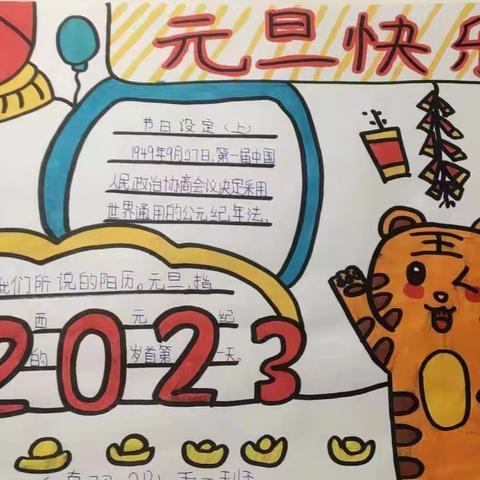 元旦快乐
节日设定（上）
1949年9月27日,第一届中国
人民政治协商会议决定采用
世界通用的公元纪年法。
我们所说的阳历。元旦,指
西 元 纪
的 岁首第一天。
2023
王